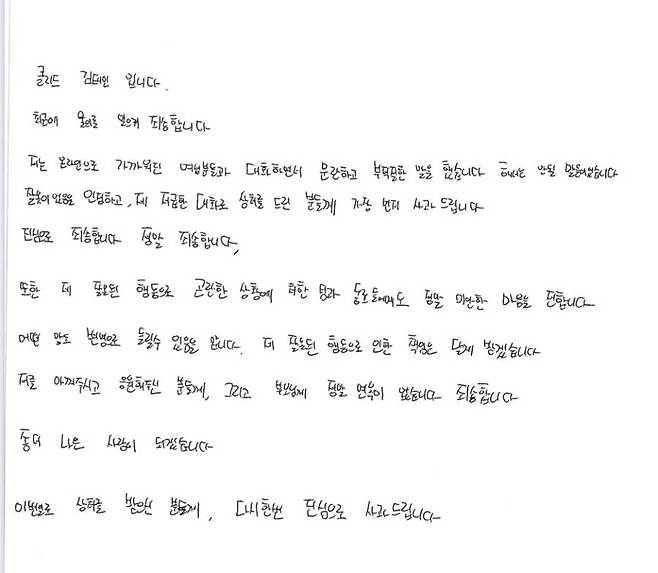 클리드 김태민 입니다.
최근에 물의를 일으켜 죄송합니다
저는 온라인으로 가까워진 여성분들과 대화하면서 문란하고 부적절한 말을 했습니다 해서는 안될 말들이었습니다
잘못이 있음을 인정하고, 제 저급한 대화로 상처를 드린 분들께 가장 먼저 사과 드립니다
진심으로 죄송합니다 정말 죄송합니다,
또한 제 잘못된 행동으로 곤란한 상황에 처한 팀과 동료들에게도 정말 미안한 마음을 전합니다
어떤 말도 변명으로 들릴수 있음을 압니다. 제 잘못된 행동으로 인한 책임은 달게 받겠습니다
저를 아껴주시고 응원해주신 분들께, 그리고 부모님께 정말 면목이 없습니다 죄송합니다
좀더 나은 사람이 되겠습니다
이번일로 상처를 받았던 분들께, 다시한번 진심으로 사과드립니다